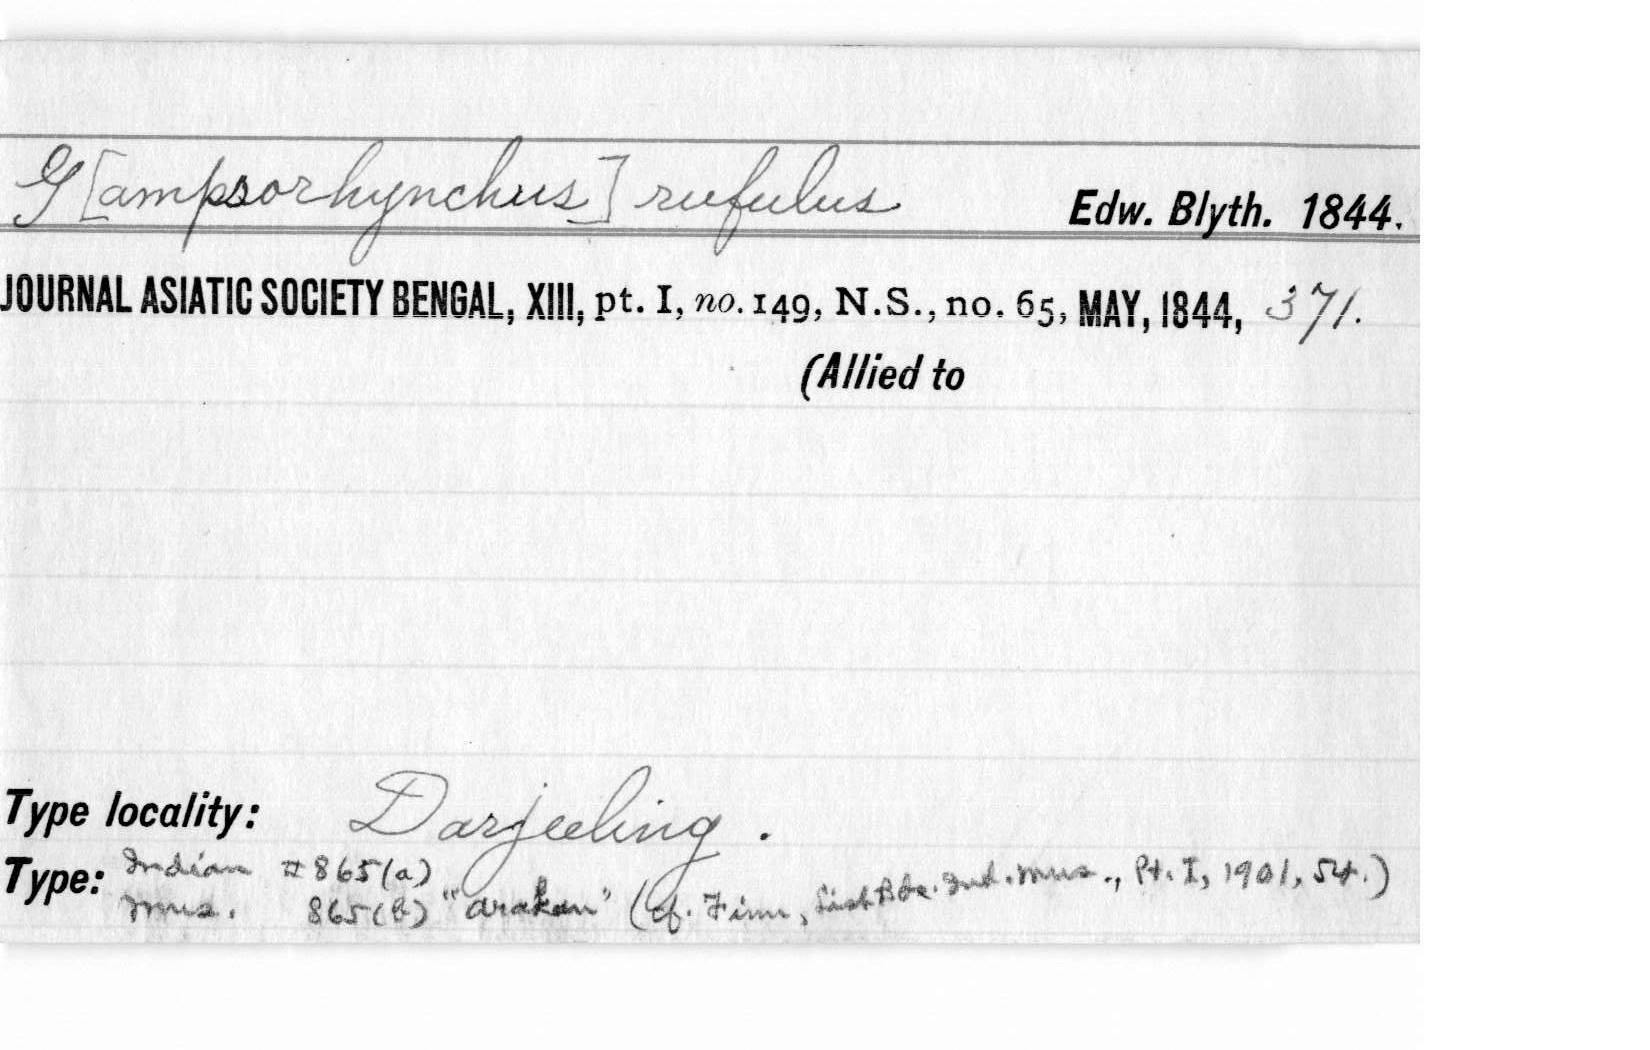 G[ampsorhynchus] rufulus Edw. Blyth. 1844.
JOURNAL ASIATIC SOCIETY BENGAL, XIII, pt. I, no. 149, N.S., no. 65, MAY, 1844, 371.
(Allied to
Type locality: Darjeeling.
Type: Indian #865(a)
Mus. 865(b) "Arakan" (cf. Finn, List Bds. Ind. Mus., Pt. I, 1901, 54.)